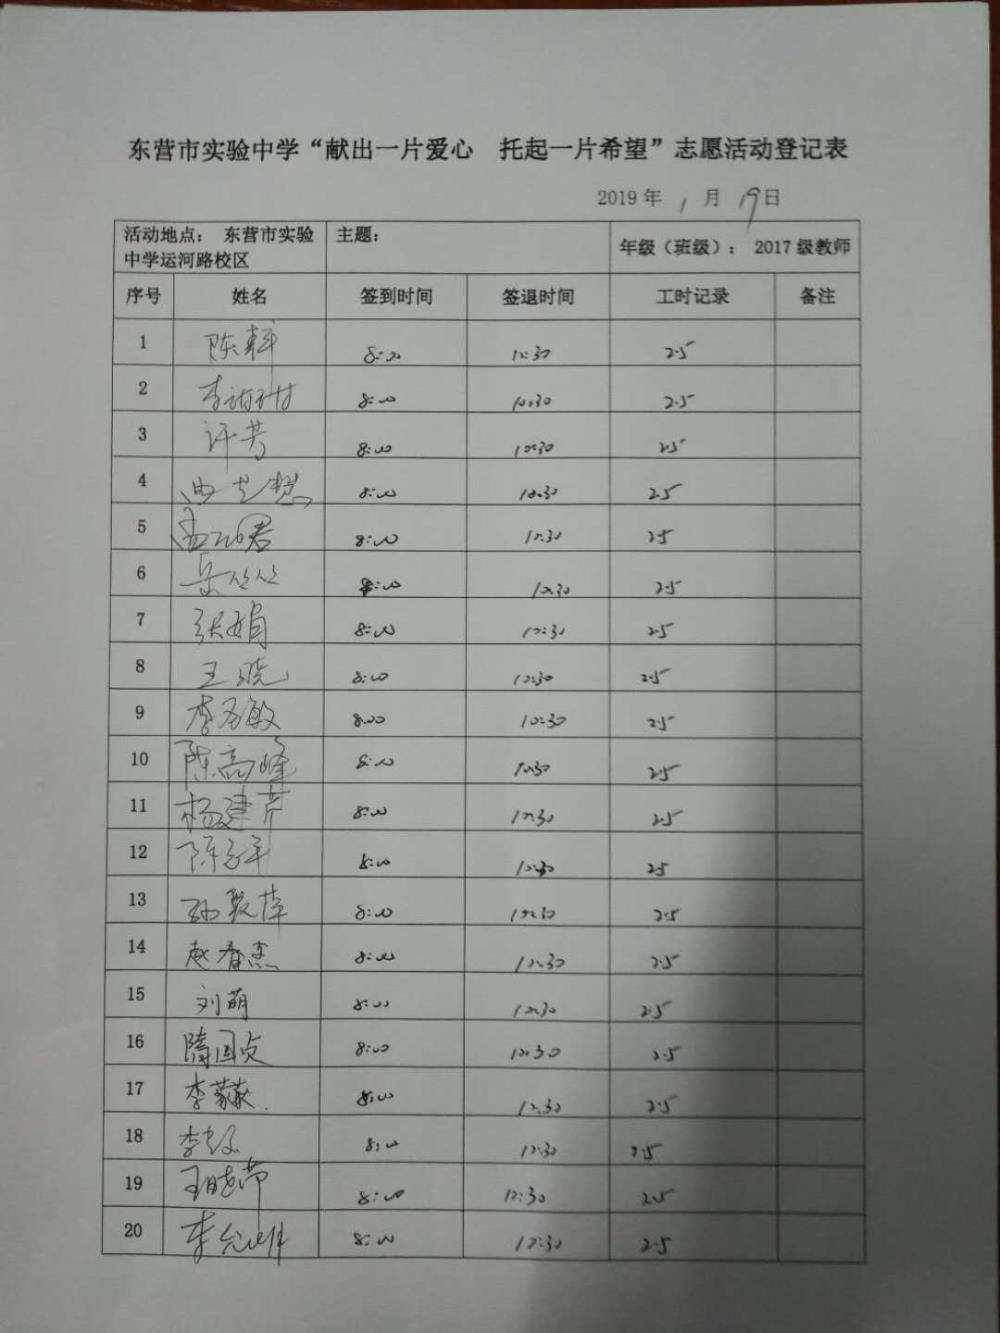 东营市实验中学“献出一片爱心 托起一片希望”志愿活动登记表
2019 年 1 月 19 日
活动地点： 东营市实验中学运河路校区 主题： 年级（班级）： 2017 级教师
序号 姓名 签到时间 签退时间 工时记录 备注
1 陈 8:00 10:30 2.5
2 李 8:00 10:30 2.5
3 许芳 8:00 10:30 2.5
4 曲 8:00 10:30 2.5
5 8:00 10:30 2.5
6 岳丛丛 8:00 10:30 2.5
7 张娟 8:00 10:30 2.5
8 王晓 8:00 10:30 2.5
9 李秀敏 8:00 10:30 2.5
10 陈高峰 8:00 10:30 2.5
11 杨建芹 8:00 10:30 2.5
12 陈 8:00 10:30 2.5
13 孙 萍 8:00 10:30 2.5
14 赵春杰 8:00 10:30 2.5
15 刘萌 8:00 10:30 2.5
16 隋国贞 8:00 10:30 2.5
17 李 8:00 10:30 2.5
18 李 8:00 10:30 2.5
19 王晓芾 8:00 10:30 2.5
20 李 8:00 10:30 2.5